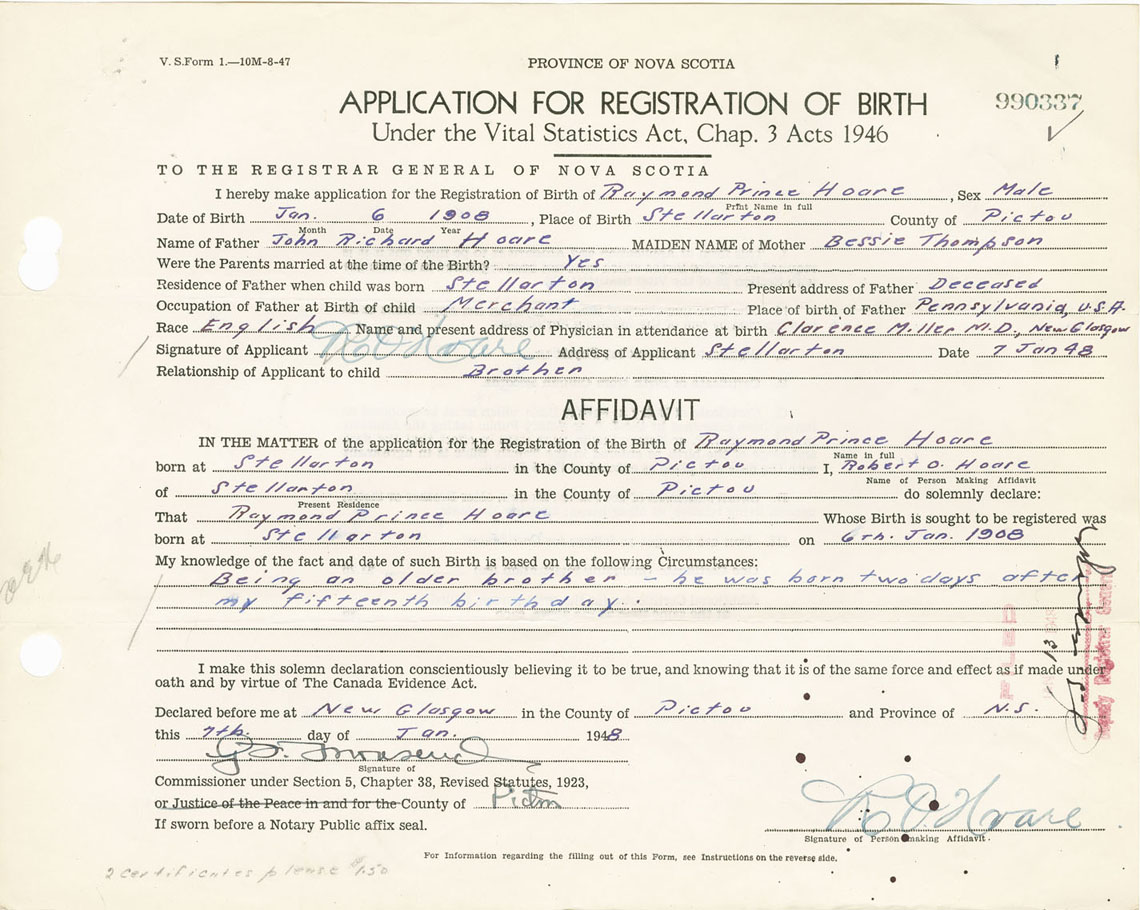 V. S. Form 1.—10M-8-47
PROVINCE OF NOVA SCOTIA
APPLICATION FOR REGISTRATION OF BIRTH
990337
Under the Vital Statistics Act, Chap. 3 Acts 1946
TO THE REGISTRAR GENERAL OF NOVA SCOTIA
I hereby make application for the Registration of Birth of Raymond Prince Hoare, Sex Male
Print Name in full
Date of Birth Jan. 6 1908, Place of Birth Stellarton County of Pictou
Month Date Year
Name of Father John Richard Hoare MAIDEN NAME of Mother Bessie Thompson
Were the Parents married at the time of the Birth? Yes
Residence of Father when child was born Stellarton Present address of Father Deceased
Occupation of Father at Birth of child Merchant Place of birth of Father Pennsylvania, U.S.A.
Race English Name and present address of Physician in attendance at birth Clarence Miller M.D., New Glasgow
Signature of Applicant R O Hoare Address of Applicant Stellarton Date 7 Jan 48
Relationship of Applicant to child Brother
AFFIDAVIT
IN THE MATTER of the application for the Registration of the Birth of Raymond Prince Hoare
Name in full
born at Stellarton in the County of Pictou I, Robert O. Hoare
Name of Person Making Affidavit
of Stellarton in the County of Pictou do solemnly declare:
Present Residence
That Raymond Prince Hoare Whose Birth is sought to be registered was
born at Stellarton on 6th. Jan. 1908
My knowledge of the fact and date of such Birth is based on the following Circumstances:
Being an older brother - he was born two days after
my fifteenth birthday.
I make this solemn declaration conscientiously believing it to be true, and knowing that it is of the same force and effect as if made under
oath and by virtue of The Canada Evidence Act.
Declared before me at New Glasgow in the County of Pictou and Province of N.S.
this 7th. day of Jan. 1948
Signature of
Commissioner under Section 5, Chapter 38, Revised Statutes, 1923,
or Justice of the Peace in and for the County of Pictou
If sworn before a Notary Public affix seal.
R O Hoare
Signature of Person making Affidavit.
For Information regarding the filling out of this Form, see Instructions on the reverse side.
2 certificates please $1.50
FILED
13
Deputy Registrar General